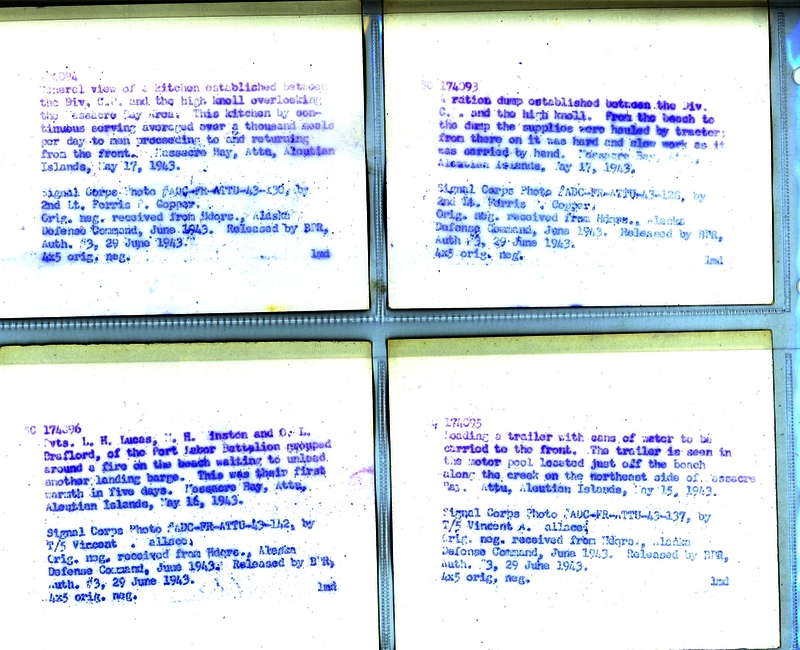 174094
General view of a kitchen established between
the Div. C.P. and the high knoll overlooking
the Massacre Bay Area. This kitchen by con-
tinuous serving averaged over a thousand meals
per day to men proceeding to and returning
from the front. Massacre Bay, Attu, Aleutian
Islands, May 17, 1943.
Signal Corps Photo #ADC-FR-ATTU-43-130, by
2nd Lt. Ferris Copper.
Orig. neg. received from Hdqrs., Alaska
Defense Command, June 1943. Released by BPR,
Auth. #3, 29 June 1943.
4x5 orig. neg.
lmd
SC 174093
A ration dump established between the Div.
C. . and the high knoll. From the beach to
the dump the supplies were hauled by tractor;
from there on it was hard and slow work as it
was carried by hand. Massacre Bay, Attu,
Aleutian Islands, May 17, 1943.
Signal Corps Photo #ADC-FR-ATTU-43-128, by
2nd Lt. Copper.
Orig. neg. received from Hdqrs., Alaska
Defense Command, June 1943. Released by BPR,
Auth #3, 29 June 1943.
4x5 orig. neg.
lmd
SC 174096
Pvts. L. H. Lucas, . H. inston and O. L.
Braflord, of the Port Labor Battalion grouped
around a fire on the beach waiting to unload
another landing barge. This was their first
warmth in five days. Massacre Bay, Attu,
Aleutian Islands, May 16, 1943.
Signal Corps Photo #ADC-FR-ATTU-43-142, by
T/5 Vincent . allace;
Orig. neg. received from Hdqrs., Alaska
Defense Command, June 1943. Released by BPR,
Auth. #3, 29 June 1943.
4x5 orig. neg.
lmd
174095
Loading a trailer with cans of water to be
carried to the front. The trailer is seen in
the motor pool located just off the beach
along the creek on the northeast side of Massacre
Bay. Attu, Aleutian Islands, May 15, 1943.
Signal Corps Photo #ADC-FR-ATTU-43-137, by
T/5 Vincent A. allace;
Orig. neg. received from Hdqrs., Alaska
Defense Command, June 1943. Released by BPR,
Auth. #3, 29 June 1943.
4x5 orig, neg.
lmd